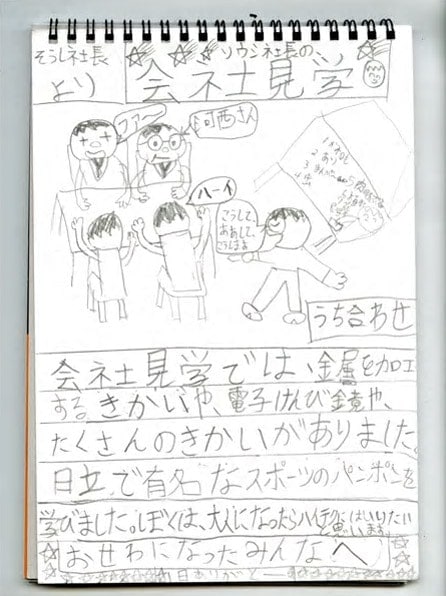 そうしネ土長
より
ソウシネ土長の、
会ネ土見学
ファァー
河西さん
ハーイ
こうして、
ああして、
うち合わせ
会ネ土見学では、金属を加工
するきかいや、電子けんび鏡や、
たくさんのきかいがありました。
日立で有名なスポーツのパンポンを
学びました。ぼくは、大人になったらハイテクにはいりたい
と思います。
おせわになったみんなへ